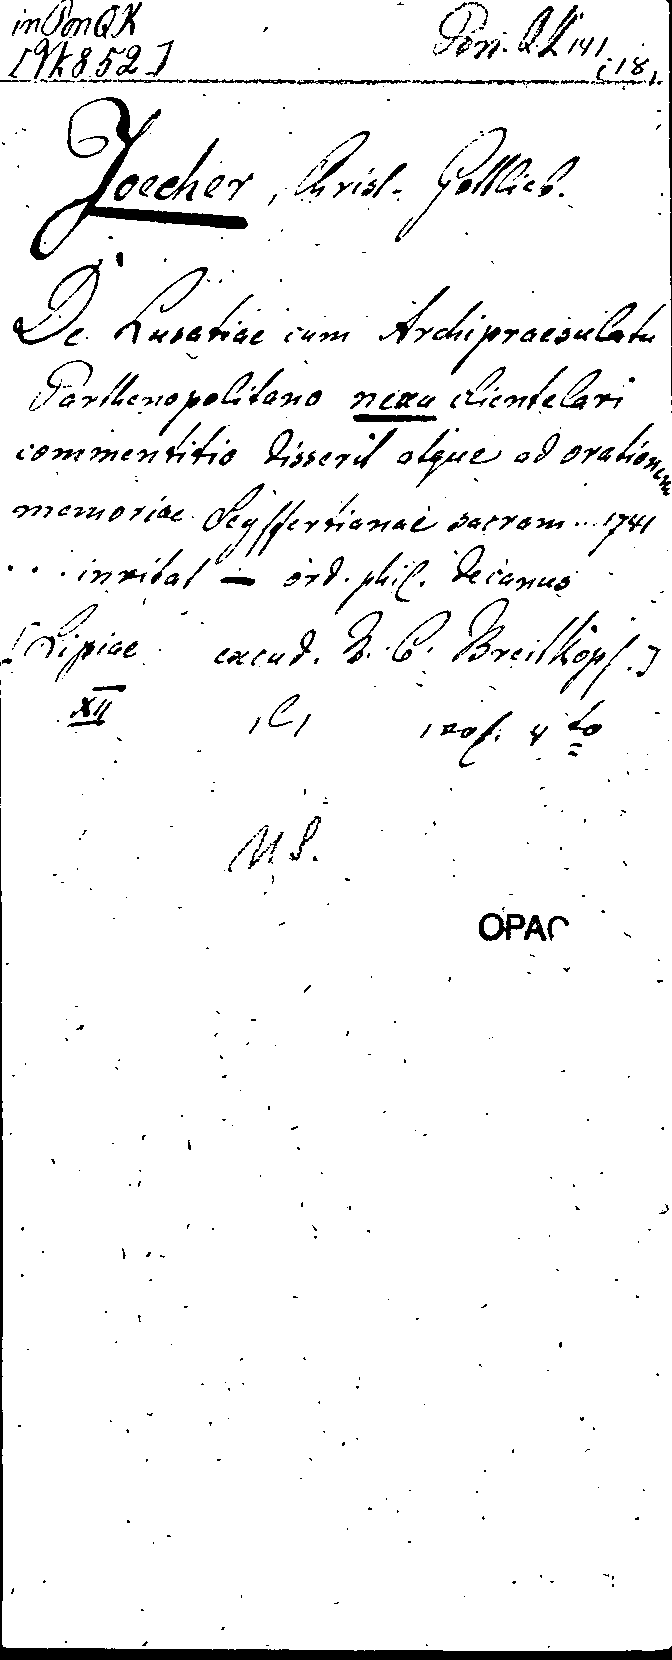 in Pon QK Pon. QK 141, (18).
[Yk852]
Joecher, Christ. Gottlieb.
De Lusatiae cum Archipraesulatu
Parthenopolitano nexu clientelari
commentitio disserit atque ad orationem
memoriae Seyffertianae sacram... 1741
... invitat — ord. phil. Decanus
[Lipsiae excud. B. C. Breitkopf.]
XII 4to
U. S.
OPAC